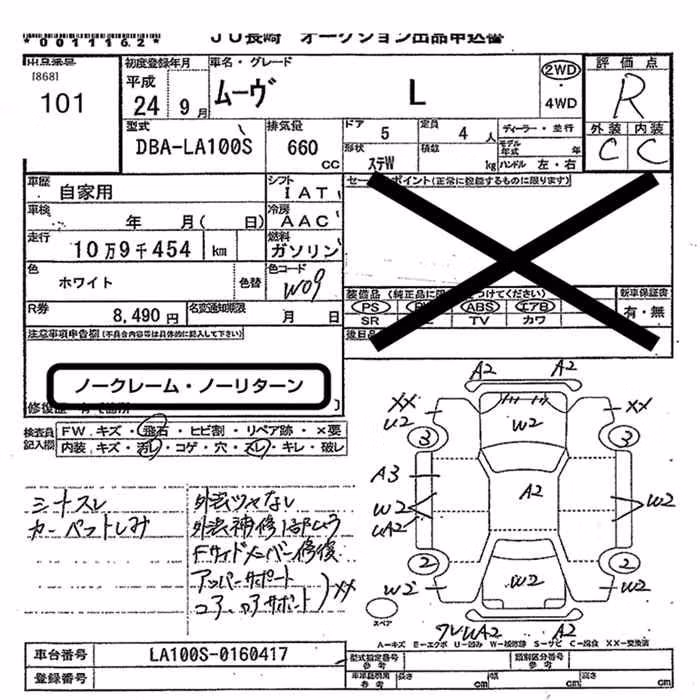 *001116.2*
JU長崎 オークション出品申込書
出品番号
[868]
101
初度登録年月
平成
24 9 月
車名・グレード
ムーヴ L
2WD
・
4WD
評価点
R
型式
DBA-LA100S
排気量
660
CC
ドア
5
定員
4 人
ディーラー・並行
モデル年式 年
形状
ステW
積載
kg
ハンドル 左・右
外装 内装
C C
車歴
自家用
シフト
IAT
セールスポイント(正常に機能するものに限ります)
車検
年 月( 日)
冷房
AAC
走行
10万9千454 km
燃料
ガソリン
色
ホワイト
色替
色コード
W09
装備品(純正品に限 つけてください)
PS ABS エアB
SR TV カワ
新車保証書
有・無
R券
8,490 円
名変通知期限
月 日
後日品
注意事項申告欄(不具合内容等は具体的に記入して下さい)
ノークレーム・ノーリターン
修復歴
検査員記入欄
FW.キズ・飛石・ヒビ割・リペア跡・×要
内装.キズ・汚レ・コゲ・穴・スレ・キレ・破レ
シートスレ
カーペットしみ
外装ツヤなし
外装補修1部ひょう
Fサイドメンバー修復
アッパーサポート
コア、ロアサポート
XX
A2 A2
XX
U2
XX
W2
W2
3
3
A3
W2
UA2
A2
W2
2
2
W2
W2
W2
スペア
UA2
A2
A=キズ E=エクボ U=凹み W=補修跡 S=サビ C=腐食 XX=交換済
車台番号
LA100S-0160417
登録番号
型式指定番号
参考
類別区分番号
参考
車車庫証明用
参考
長さ cm
幅 cm
高さ cm